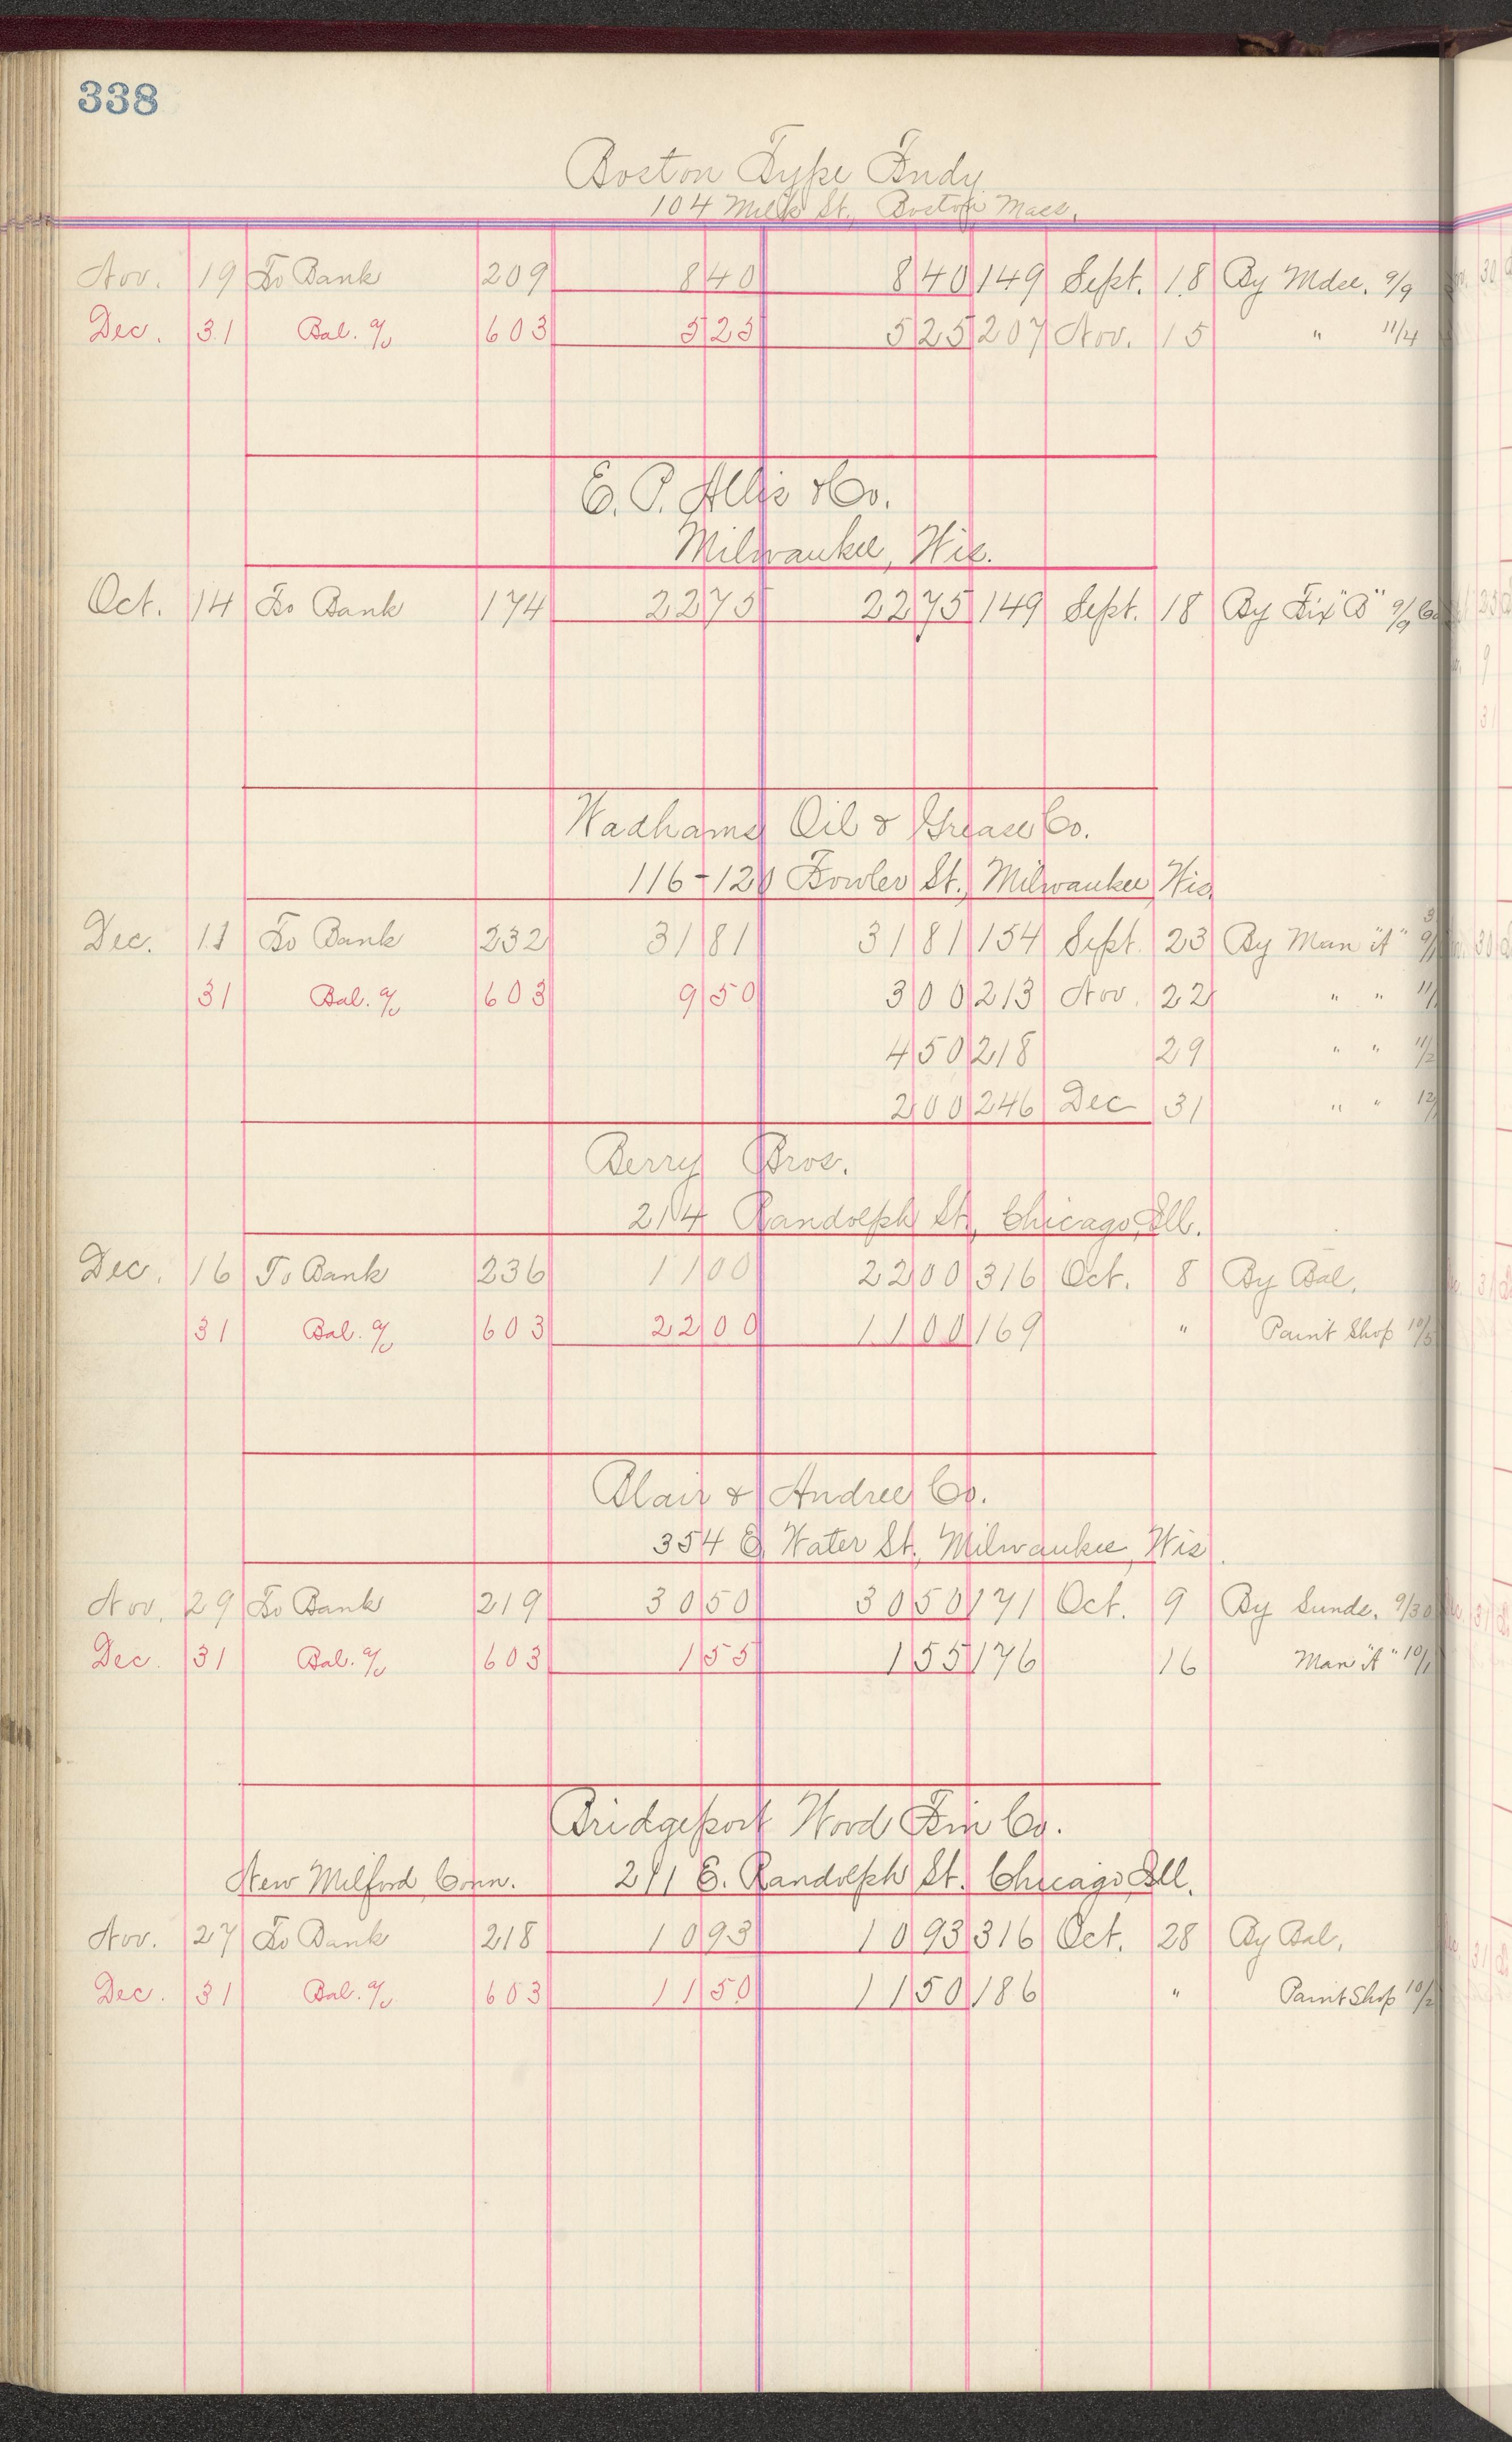 338
Boston Type Fndy
104 Milk St., Boston, Mass.
Nov. 19 To Bank 209 8 40 8 40 149 Sept. 18 By Mdse. 9/9
Dec. 31 Bal. a/c 603 5 25 5 25 207 Nov. 15 " 11/4
E. P. Allis & Co.
Milwaukee, Wis.
Oct. 14 To Bank 174 22 75 22 75 149 Sept. 18 By Fix "B" 9/9
Wadhams Oil & Grease Co.
116-120 Fowler St., Milwaukee, Wis.
Dec. 11 To Bank 232 31 81 31 81 154 Sept. 23 By Man "A"
31 Bal. a/c 603 9 50 3 00 213 Nov. 22 " "
4 50 218 29 " "
2 00 246 Dec 31 " "
Berry Bros.
214 Randolph St., Chicago, Ill.
Dec. 16 To Bank 236 11 00 22 00 316 Oct. 8 By Bal.
31 Bal. a/c 603 22 00 11 00 169 " Paint Shop
Blair & Andree Co.
354 E. Water St., Milwaukee, Wis.
Nov. 29 To Bank 219 30 50 30 50 171 Oct. 9 By Sunds. 9/30
Dec. 31 Bal. a/c 603 1 55 1 55 176 16 Man "A"
Bridgeport Wood Fin Co.
New Milford, Conn. 241 E. Randolph St. Chicago, Ill.
Nov. 27 To Bank 218 10 93 10 93 316 Oct. 28 By Bal.
Dec. 31 Bal. a/c 603 11 50 11 50 186 " Paint Shop